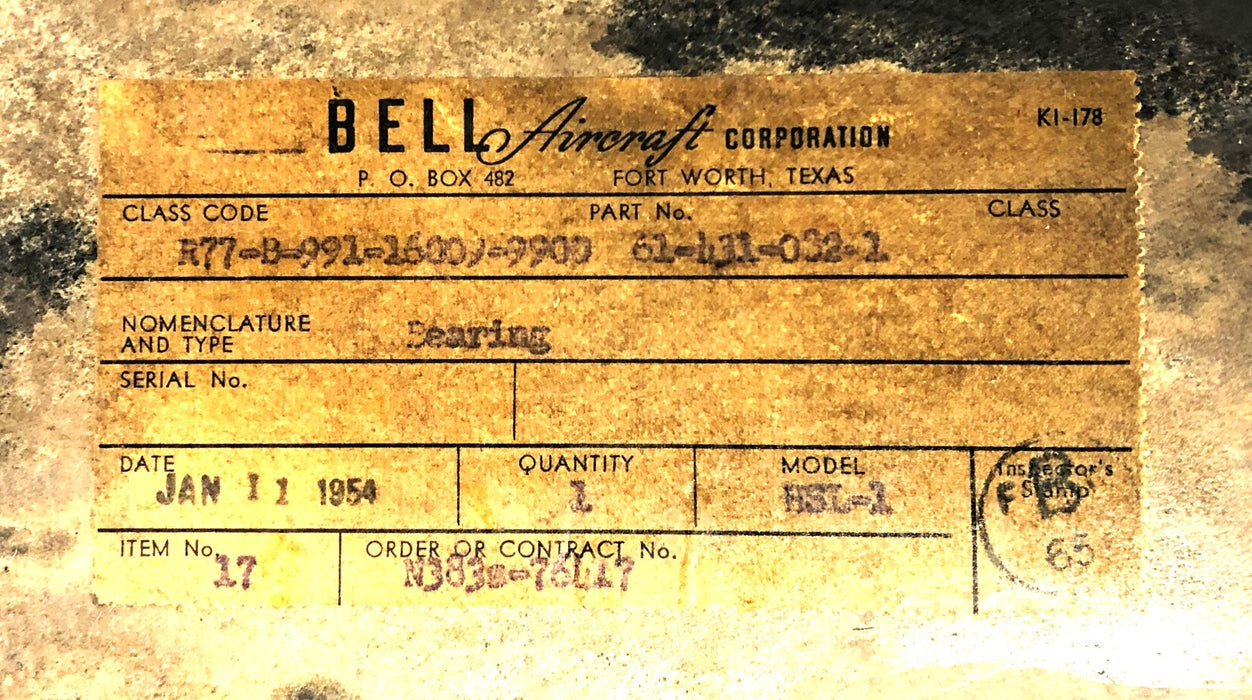 BELL Aircraft CORPORATION
KI-178
P. O. BOX 482 FORT WORTH, TEXAS
CLASS CODE PART No. CLASS
61-431-032-1
NOMENCLATURE
AND TYPE
Bearing
SERIAL No.
DATE QUANTITY MODEL Inspector's
Stamp
JAN 11 1954 1 HSL-1
65
ITEM No. ORDER OR CONTRACT No.
17